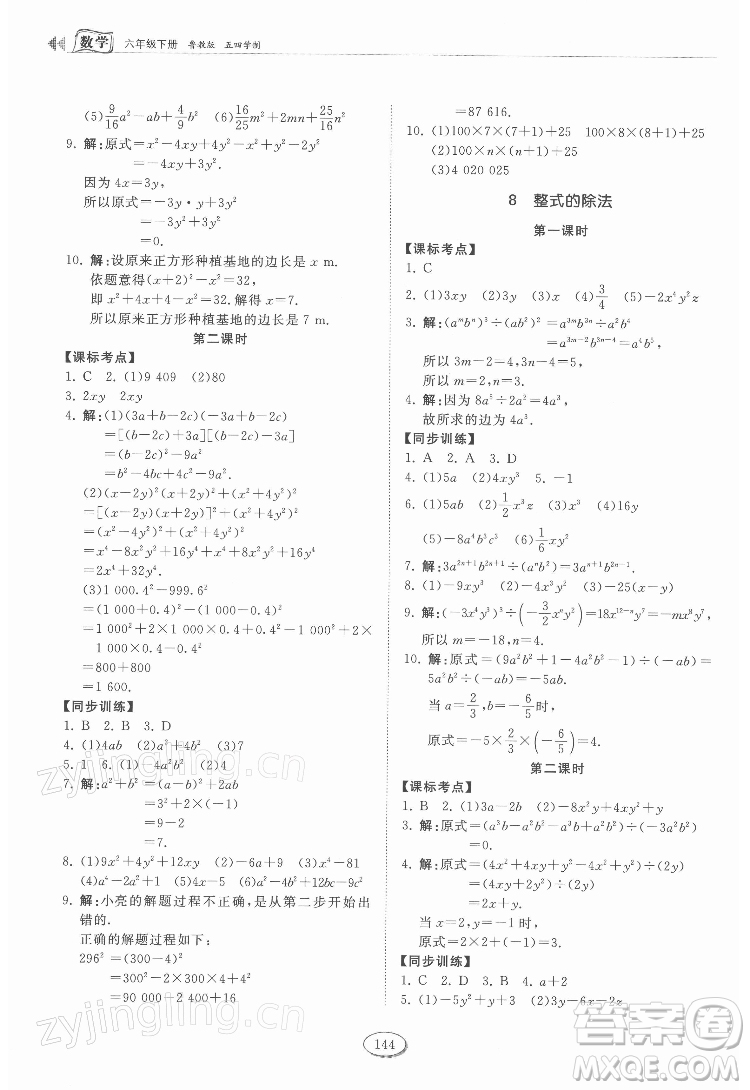 数学 六年级下册 鲁教版 五四学制
(5)9/16a²-ab+4/9 (6)16/25m²+2mn+25/16n²
9. 解:原式=x²-4xy+4y²-x²+y²-2y²
=-4xy+3y².
因为4x=3y,
所以原式=-3y·y+3y²
=-3y²+3y²
=0.
10. 解:设原来正方形种植基地的边长是x m.
依题意得(x+2)²-x²=32,
即x²+4x+4-x²=32.解得x=7.
所以原来正方形种植基地的边长是7 m.
第二课时
【课标考点】
1. C 2. (1)9 409 (2)80
3. 2xy 2xy
4. 解:(1)(3a+b-2c)(-3a+b-2c)
=[(b-2c)+3a][(b-2c)-3a]
=(b-2c)²-9a²
=b²-4bc+4c²-9a².
(2)(x-2y)²(x+2y)²+(x²+4y²)²
=[(x-2y)(x+2y)]²+(x²+4y²)²
=(x²-4y²)²+(x²+4y²)²
=x⁴-8x²y²+16y⁴+x⁴+8x²y²+16y⁴
=2x⁴+32y⁴.
(3)1 000.4²-999.6²
=(1 000+0.4)²-(1 000-0.4)²
=1 000²+2×1 000×0.4+0.4²-1 000²+2×
1 000×0.4-0.4²
=800+800
=1 600.
【同步训练】
1. B 2. B 3. D
4. (1)4ab (2)2a²+4b² (3)7
5. 1 6. (1)-4 (2)4
7. 解:a²+b²=(a-b)²+2ab
=3²+2×(-1)
=9-2
=7.
8. (1)9x²+4y²+12xy (2)-6a+9 (3)x⁴-81
(4)a⁴-2a²+1 (5)4a²-b²+12bc-9c²
9. 解:小亮的解题过程不正确,是从第二步开始出
错的.
正确的解题过程如下:
296²=(300-4)²
=300²-2×300×4+4²
=90 000-2 400+16
=87 616.
10. (1)100×7×(7+1)+25 100×8×(8+1)+25
(2)100×n×(n+1)+25
(3)4 020 025
8 整式的除法
第一课时
【课标考点】
1. C
2. (1)3xy (2)3y (3)x (4)3/4 (5)-8x²y²z
3. 解:(aᵐbⁿ)³÷(ab²)²=a³ᵐb³ⁿ÷a²b⁴
=a³ᵐ⁻²b³ⁿ⁻⁴=a⁴b⁵,
所以3m-2=4,3n-4=5.
所以m=2,n=3.
4. 解:因为8a⁵÷2a²=4a³,
故所求的边为4a³.
【同步训练】
1. A 2. A 3. D
4. (1)5a (2)4xy³ 5. -1
6. (1)5ab (2)1/2x³z (3)x³ (4)16y
(5)-8a⁴b³c³ (6)1/6xy²
7. 解:3a²ⁿ⁺¹b²ⁿ⁺¹÷(-a²b)ⁿ·b²=3aⁿ⁺¹b²ⁿ⁻¹.
8. (1)-9xy³ (2)-25x (3)x-y
9. 解:(-3x⁴y³)³÷(-3/2xⁿy²)=18x¹²⁻ⁿy⁷=-mx⁸y⁷,
所以m=-18,n=4.
10. 解:原式=(9a²b²+1-1-4a²b²)÷(-ab)=
5a²b²÷(-ab)=-5ab.
当a=2/3,b=-6/5时,
原式=-5×2/3×(-6/5)=4.
第二课时
【课标考点】
1. B 2. (1)3a-2b (2)-8x²+4xy²+1
3. 解:原式=(a³b-a³b)÷(a⁵b³-a³b³)
=0.
4. 解:原式=(4x²+4xy+y²-y²)÷2x
=(4x²+4xy)÷2x
=2x+2y.
当x=2,y=-1时,
原式=2×2+2×(-1)=2.
【同步训练】
1. C 2. D 3. C 4. a+2
5. (1)-5y²+3y (2)-8x-6
144
答案圈
MXQE.COM
zyjingling.cn